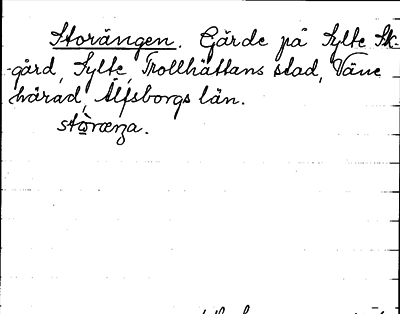 Storängen. Gärde på Sylte Sk-
-gård, Sylte, Trollhättans stad, Väne
härad, Älfsborgs län.
stòræŋa.